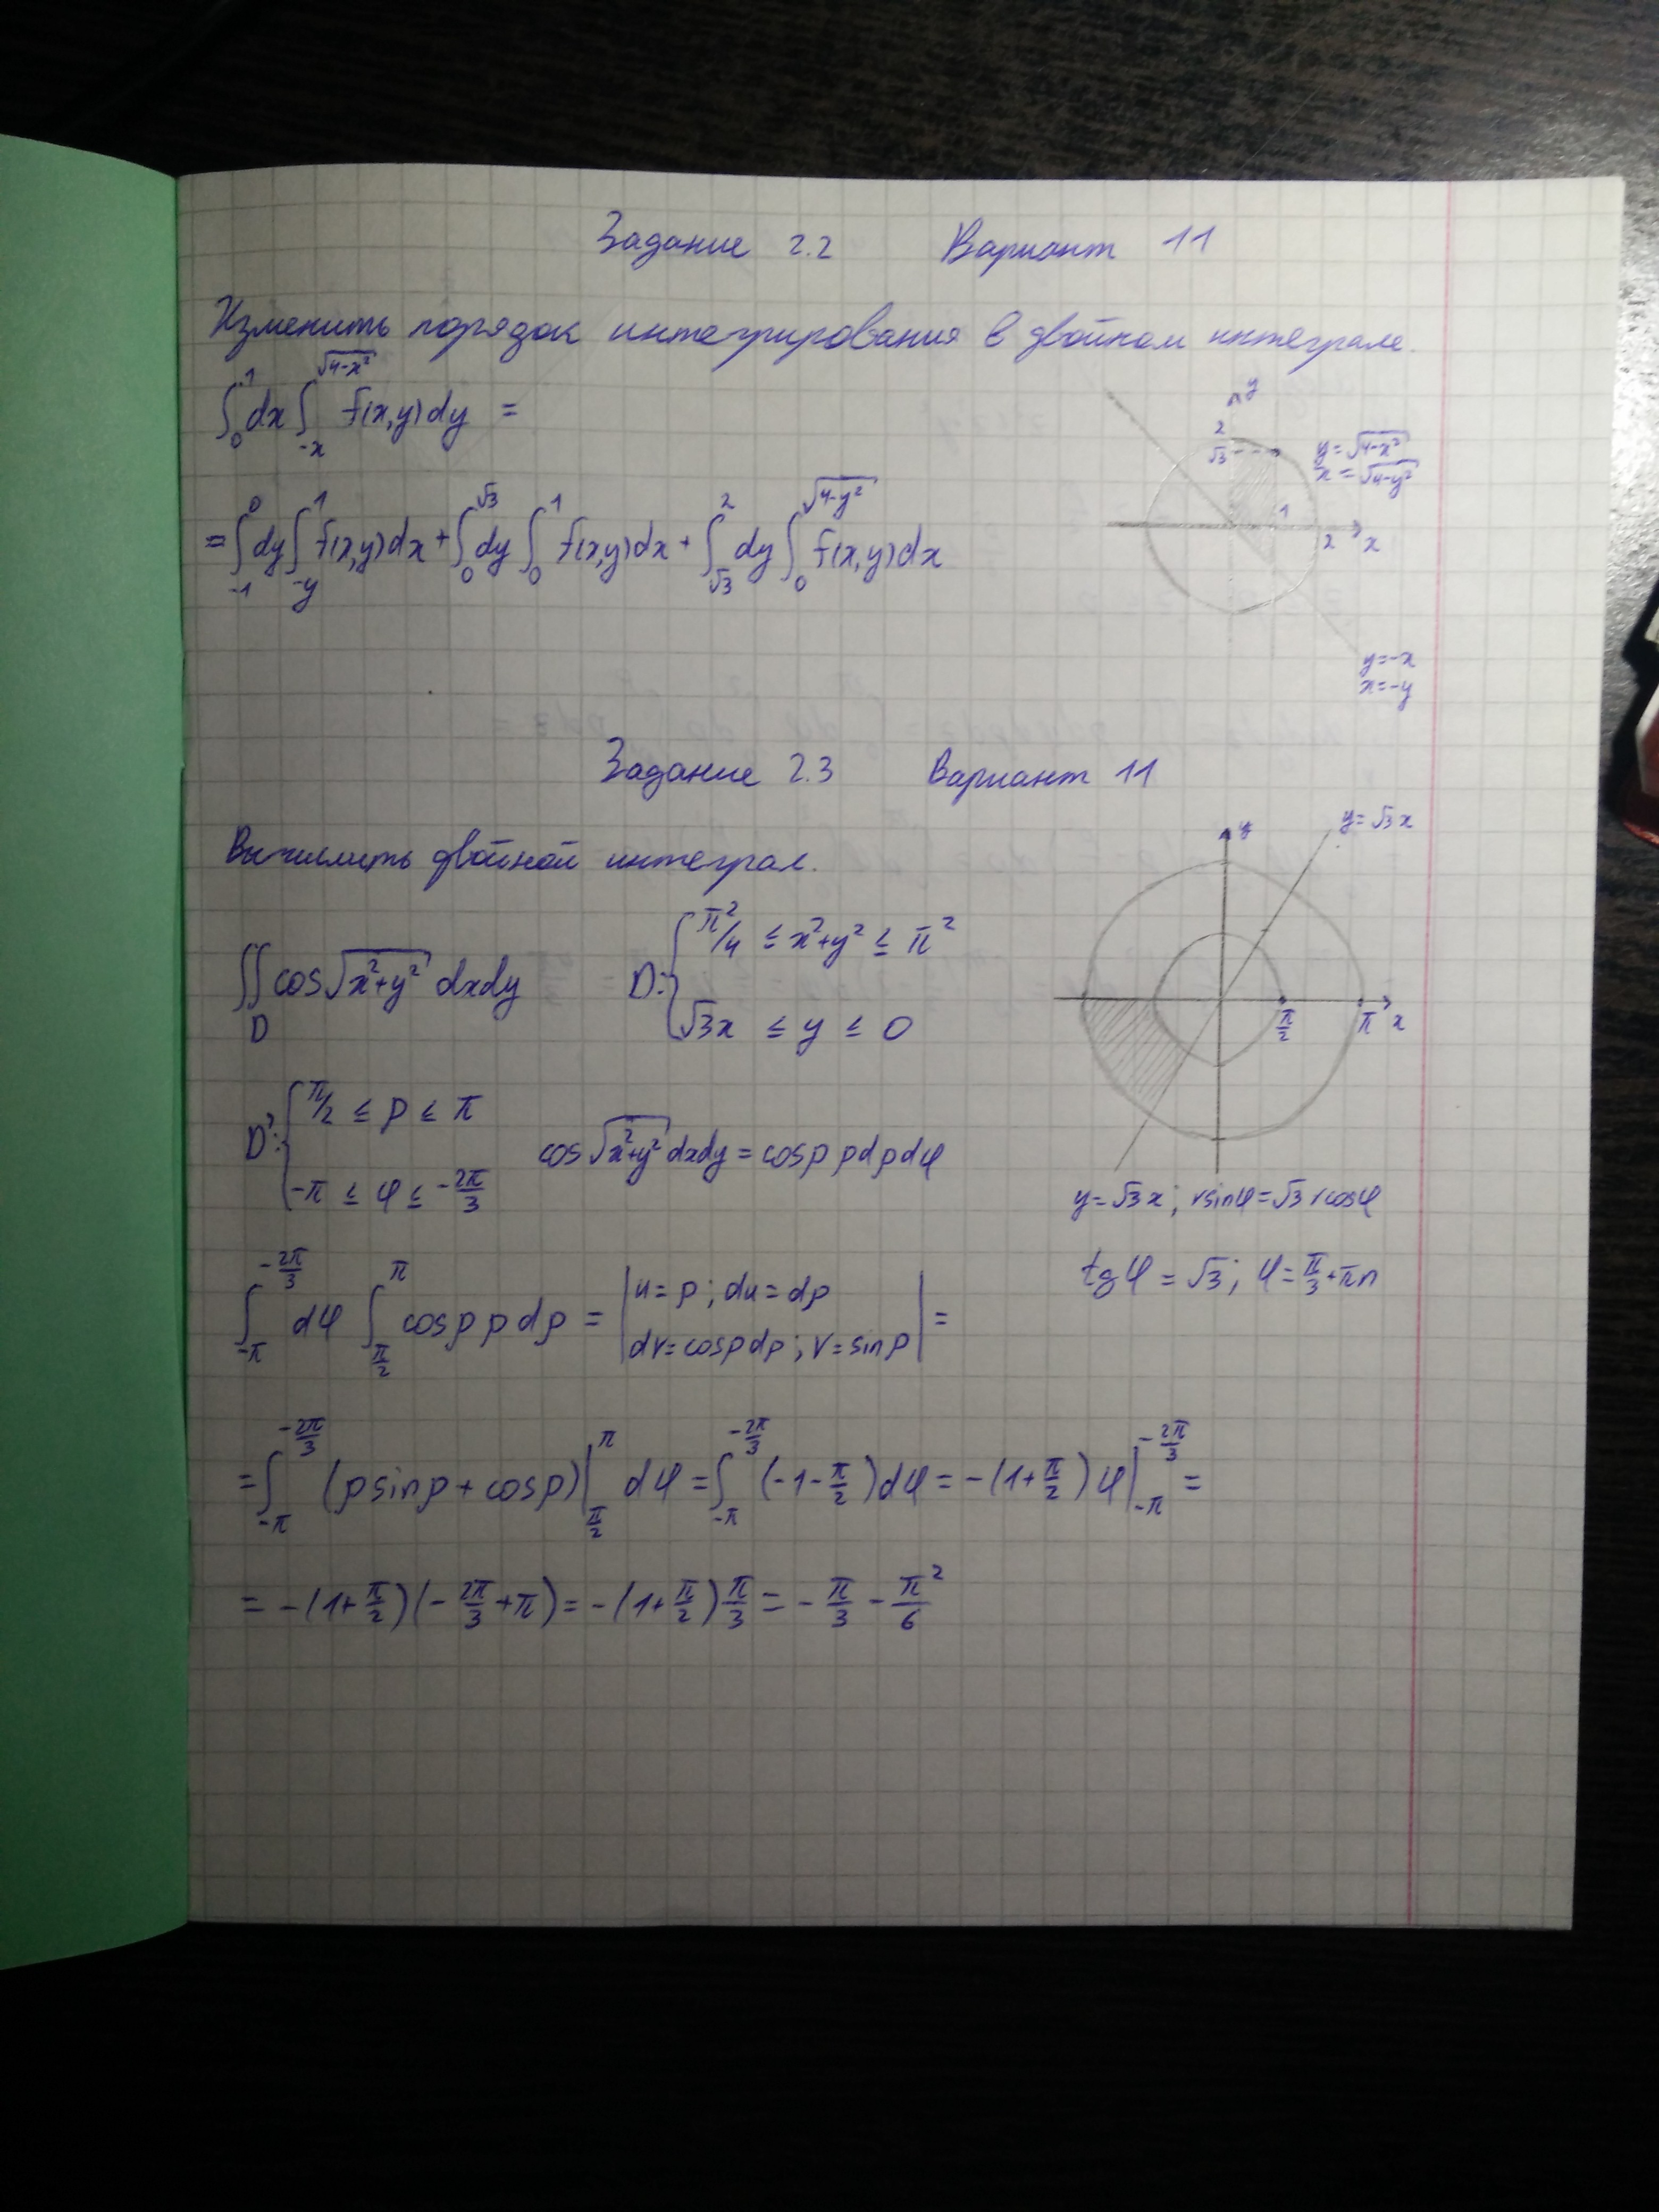 Задание 2.2 Вариант 11
Изменить порядок интегрирования в двойном интеграле.
∫₀¹ dx ∫₋ₓ^√(4-x²) f(x,y)dy =
y
2
√3
y=√(4-x²)
x=√(4-y²)
1
2 x
= ∫₋₁⁰ dy ∫₋y¹ f(x,y)dx + ∫₀^√3 dy ∫₀¹ f(x,y)dx + ∫_√3² dy ∫₀^√(4-y²) f(x,y)dx
y=-x
x=-y
Задание 2.3 Вариант 11
Вычислить двойной интеграл.
y
y=√3x
∬_D cos√(x²+y²) dxdy D: { π²/4 ≤ x²+y² ≤ π²
√3x ≤ y ≤ 0
π/2 π x
D': { π/2 ≤ ρ ≤ π
-π ≤ φ ≤ -2π/3
cos√(x²+y²) dxdy = cosρ ρdρdφ
y=√3x; rsinφ=√3rcosφ
tgφ = √3; φ=π/3+πn
∫_{-π}^{-2π/3} dφ ∫_{π/2}^{π} cosρ ρdρ = | u=ρ; du=dρ
dv=cosρdρ; v=sinρ | =
= ∫_{-π}^{-2π/3} (ρsinρ+cosρ)|_{π/2}^{π} dφ = ∫_{-π}^{-2π/3} (-1-π/2)dφ = -(1+π/2)φ|_{-π}^{-2π/3} =
= -(1+π/2)(-2π/3+π) = -(1+π/2)π/3 = -π/3 - π²/6